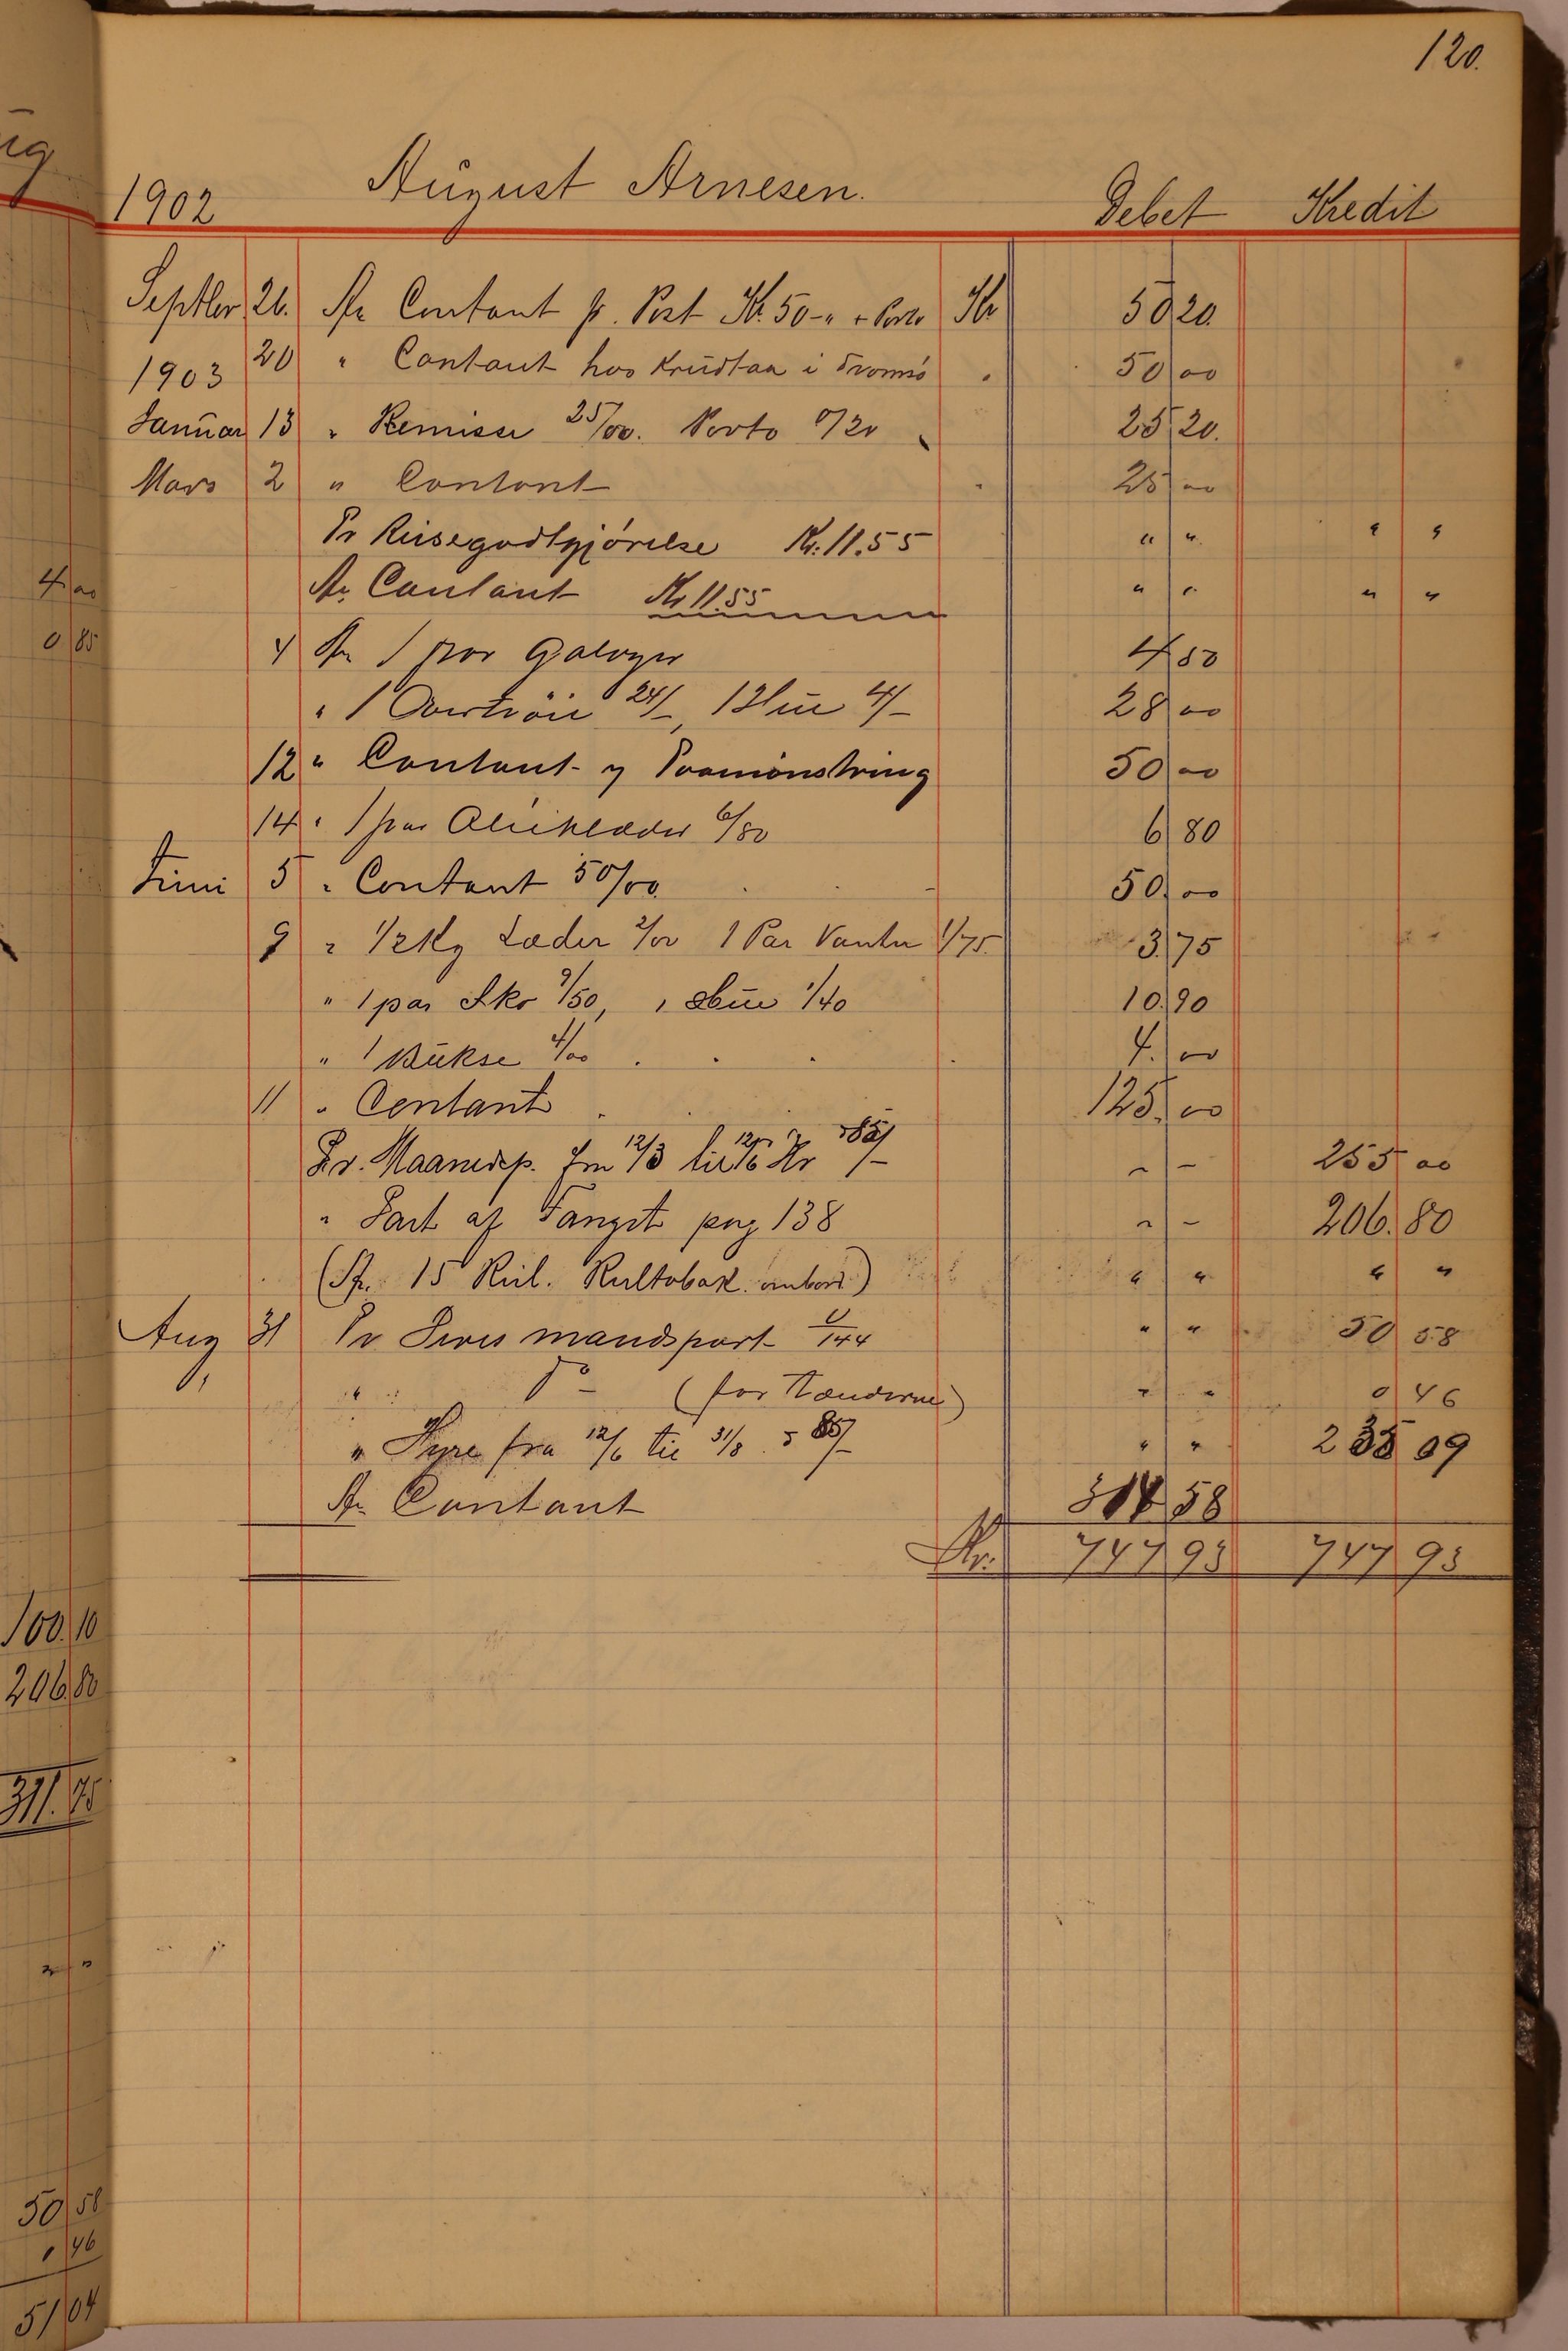 120.
1902 August Arnesen. Debet Kredit
Septbr 26. An Contant pr. Post Kr. 50-" + Porto Kr 50 20
1903 20 " Contant hos Krüdtaa i Tromsö " 50 00
Januar 13 " Remisse 25/00. Porto 0/20 " 25 20.
Mars 2 " Contant " 25 00
Pr Reisegodtgjörelse Kr. 11.55 " " " "
An Contant Kr 11.55 " " " "
4 An 1 par Galoger 4 50
" 1 Overtröie 24/-, 1 Hue 4/- 28 00
12 " Contant v Paamönstring 50 00
14 " 1 par Olieklæder 6/80 6 80
Juni 5 " Contant 50/00. 50 00
9 " 1/2 Kg Læder 2/00 1 Par Vanter 1/75. 3 75
" 1 par Sko 9/50, 1 Hue 1/40 10.90
" 1 Bükse 4/00 4. 00
11 " Contant 125. 00
Pr. Maanedsp. fra 12/3 til 12/6 Kr 85/- " - 255 00
" Part af Fangst pag 138 " - 206. 80
(An 15 Rul. Rultobak ombord) " " " "
Aug 31 Pr Fives mandspart 144 " " 50 58
" Do - (for Tænderne) " " 0 46
" Hyre fra 12/6 til 31/8 85/- " " 235 09
An Contant 314 58
Kr. 747 93 747 93
4 00
0 85
100. 10
206 80
311. 75
" "
50 58
" 46
51 04